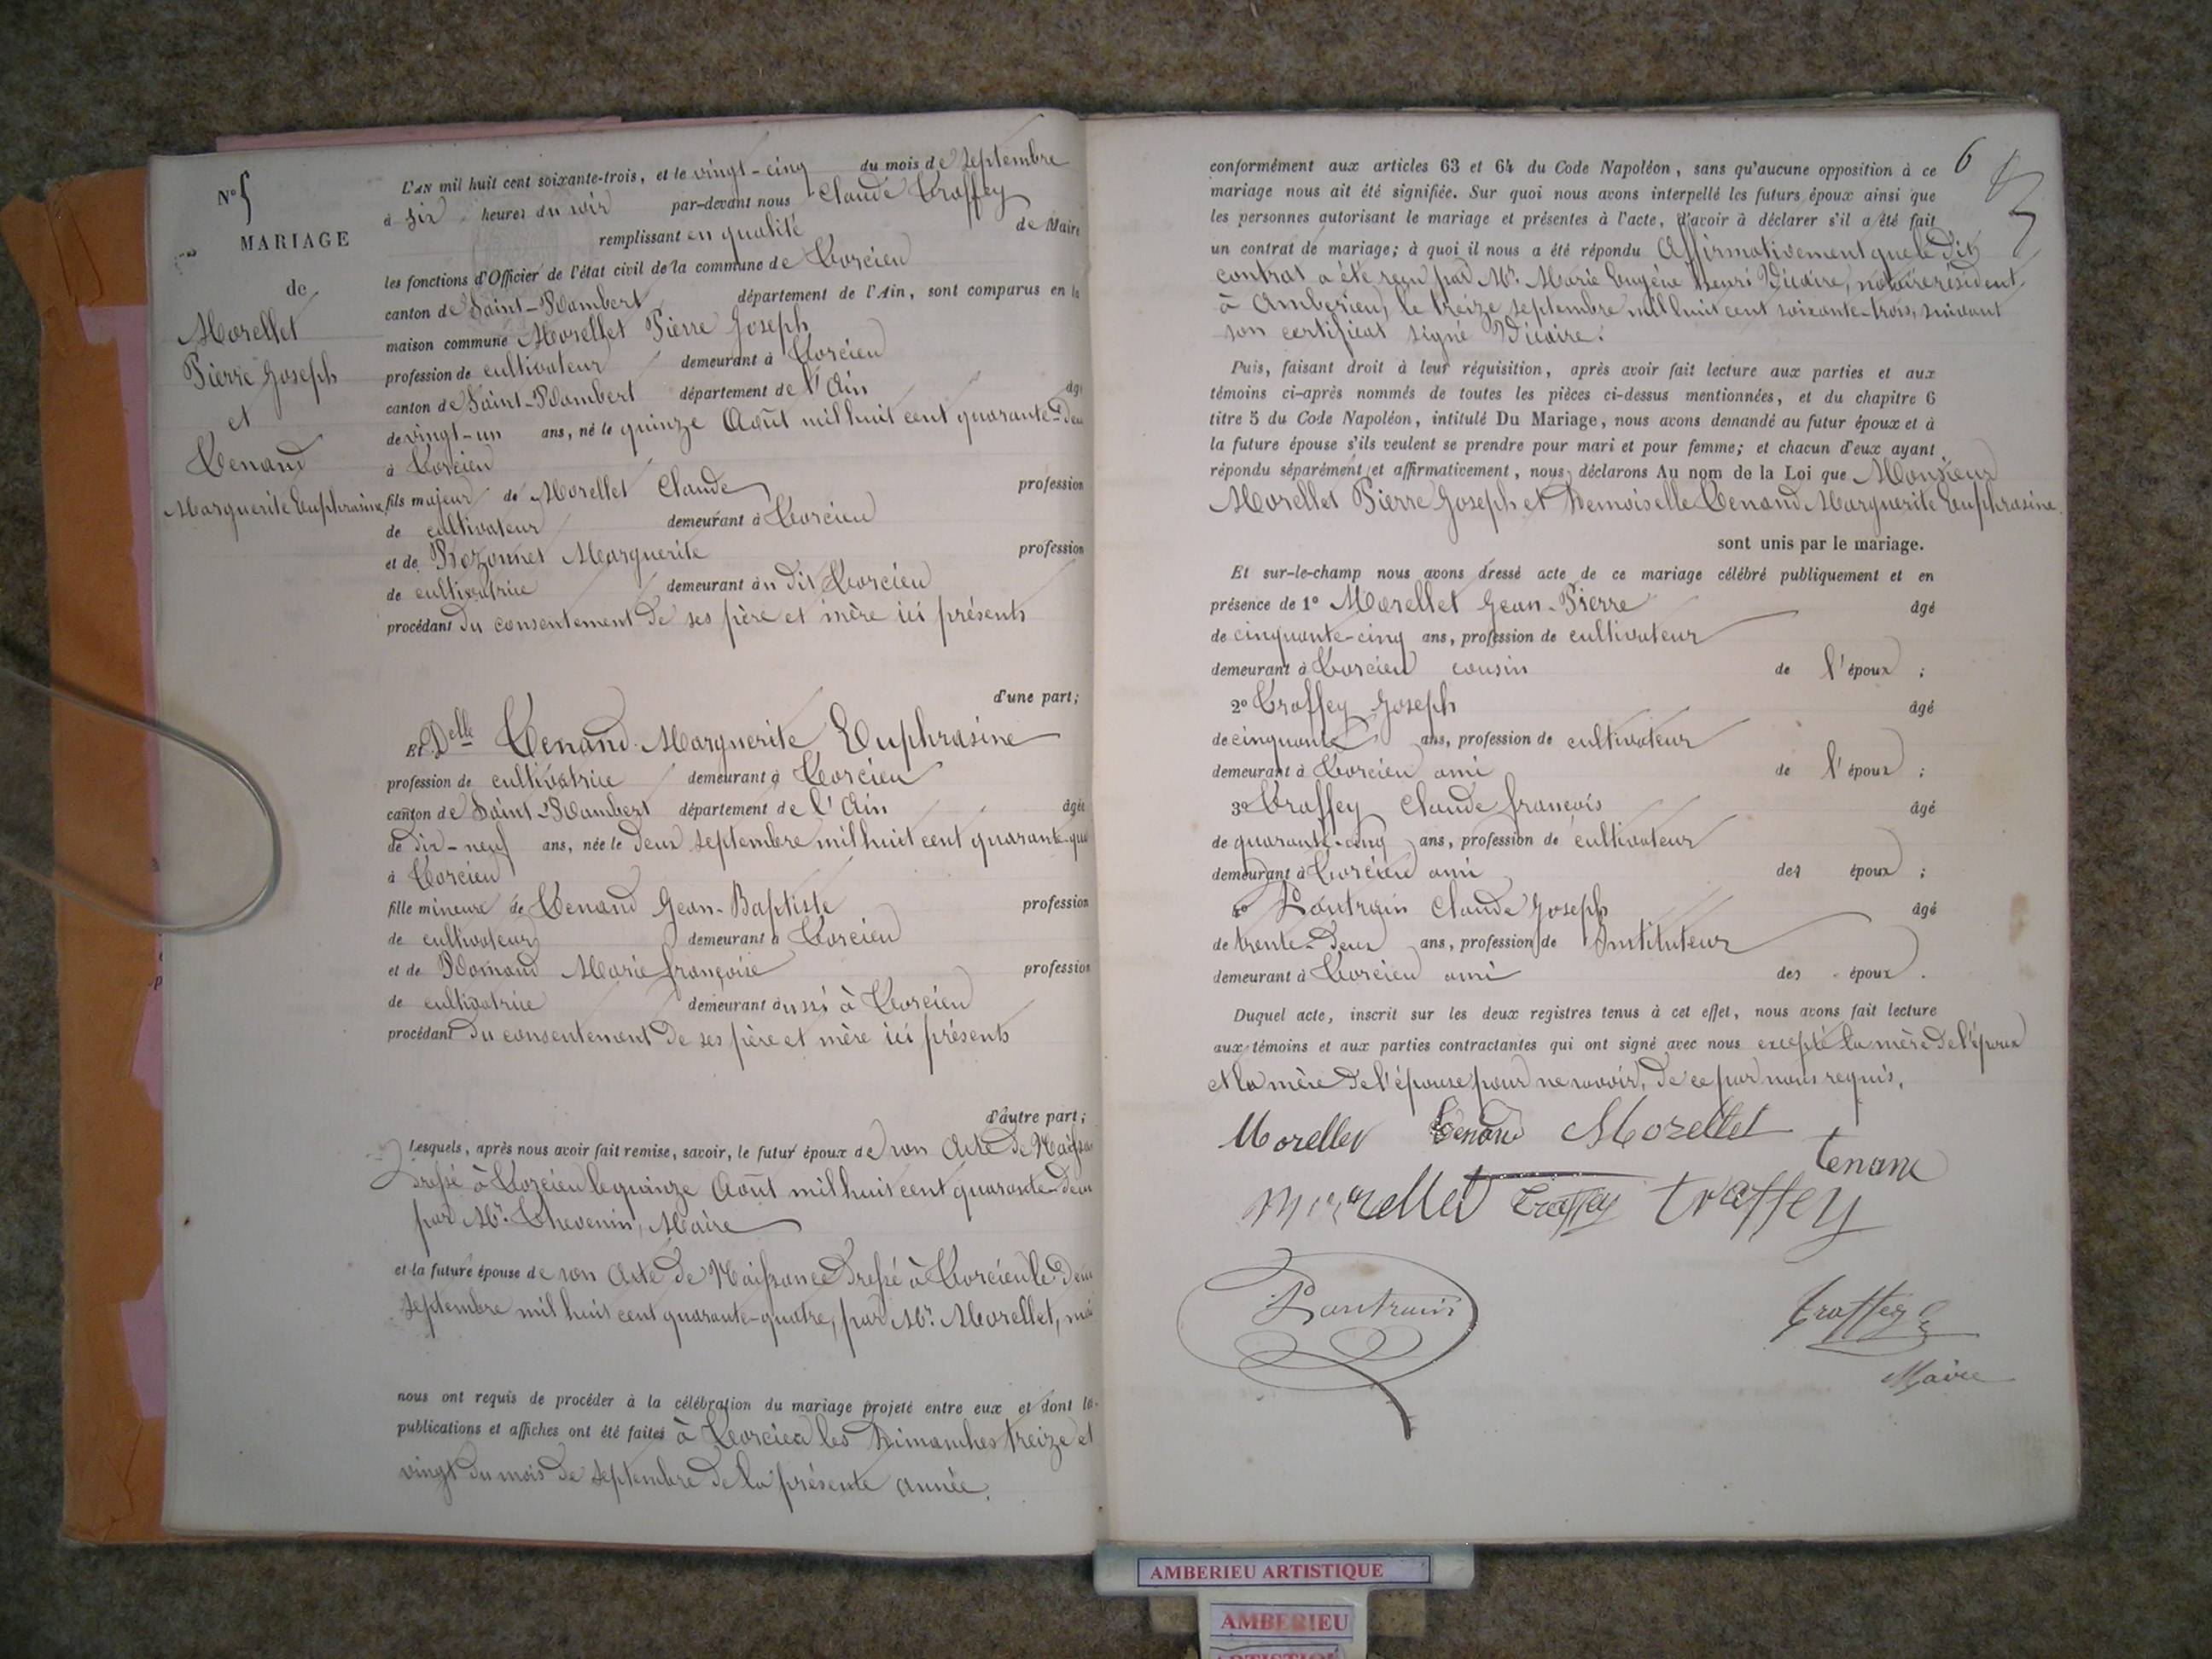 N° 5
MARIAGE
de
Morellet
Pierre Joseph
et
Tenand
Marguerite Euphrasine
L'AN mil huit cent soixante-trois, et le vingt-cinq du mois de Septembre
à six heures du soir par-devant nous Claude Traffey
remplissant en qualité de Maire
les fonctions d'Officier de l'état civil de la commune de Torcieu
canton de Saint-Rambert département de l'Ain, sont comparus en la
maison commune Morellet Pierre Joseph
profession de cultivateur demeurant à Torcieu
canton de Saint-Rambert département de l'Ain âgé
de vingt-un ans, né le quinze Août mil huit cent quarante-deu
à Torcieu
fils majeur de Morellet Claude profession
de cultivateur demeurant à Torcieu
et de Rozonnet Marguerite profession
de cultivatrice demeurant au dit Torcieu
procédant du consentement de ses père et mère ici présents
d'une part;
Et Delle Tenand Marguerite Euphrasine
profession de cultivatrice demeurant à Torcieu
canton de Saint-Rambert département de l'Ain âgée
de dix-neuf ans, née le deux septembre mil huit cent quarante-qua
à Torcieu
fille mineure de Tenand Jean-Baptiste profession
de cultivateur demeurant à Torcieu
et de Romand Marie françoise profession
de cultivatrice demeurant aussi à Torcieu
procédant du consentement de ses père et mère ici présents
d'autre part;
Lesquels, après nous avoir fait remise, savoir, le futur époux de son Acte de Naissa
dressé à Torcieu le quinze Août mil huit cent quarante deux
par Mr. Thevenin, Maire
et la future épouse de son Acte de Naissance dressé à Torcieu le deux
septembre mil huit cent quarante-quatre, par Mr. Morellet, mai
nous ont requis de procéder à la célébration du mariage projeté entre eux et dont les
publications et affiches ont été faites à Torcieu les Dimanches treize et
vingt du mois de septembre de la présente année.
6
conformément aux articles 63 et 64 du Code Napoléon, sans qu'aucune opposition à ce
mariage nous ait été signifiée. Sur quoi nous avons interpellé les futurs époux ainsi que
les personnes autorisant le mariage et présentes à l'acte, d'avoir à déclarer s'il a été fait
un contrat de mariage; à quoi il nous a été répondu Affirmativement que le dit
contrat a été reçu par Mr. Marie Eugène henri Dicaire, notaire résident
à Ambérieu, le treize septembre mil huit cent soixante-trois, suivant
son certificat signé Dicaire.
Puis, faisant droit à leur réquisition, après avoir fait lecture aux parties et aux
témoins ci-après nommés de toutes les pièces ci-dessus mentionnées, et du chapitre 6
titre 5 du Code Napoléon, intitulé Du Mariage, nous avons demandé au futur époux et à
la future épouse s'ils veulent se prendre pour mari et pour femme; et chacun d'eux ayant
répondu séparément et affirmativement, nous déclarons Au nom de la Loi que Monsieur
Morellet Pierre Joseph et Demoiselle Tenand Marguerite Euphrasine
sont unis par le mariage.
Et sur-le-champ nous avons dressé acte de ce mariage célébré publiquement et en
présence de 1° Morellet Jean-Pierre âgé
de cinquante-cinq ans, profession de cultivateur
demeurant à Torcieu cousin de l'époux ;
2° Traffey Joseph âgé
de cinquante ans, profession de cultivateur
demeurant à Torcieu ami de l'époux ;
3° Traffey Claude françois âgé
de quarante-cinq ans, profession de cultivateur
demeurant à Torcieu ami des époux ;
4° Pautrain Claude Joseph âgé
de trente-deux ans, profession de Instituteur
demeurant à Torcieu ami des époux.
Duquel acte, inscrit sur les deux registres tenus à cet effet, nous avons fait lecture
aux témoins et aux parties contractantes qui ont signé avec nous excepté la mère de l'époux
et la mère de l'épouse pour ne savoir, de ce par nous requis.
Morellet Tenand Morellet
Tenand
Morellet Traffey Traffey
Pautrain
Traffey
Maire
AMBERIEU ARTISTIQUE
AMBERIEU
ARTISTIQUE